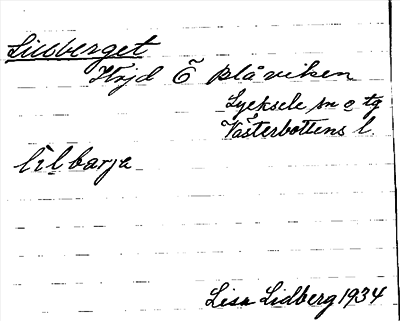 Lillberget
Höjd Ö Blåviken
Lycksele sn o tg
Västerbottens l.
lìlbarja
Lisa Lidberg 1934